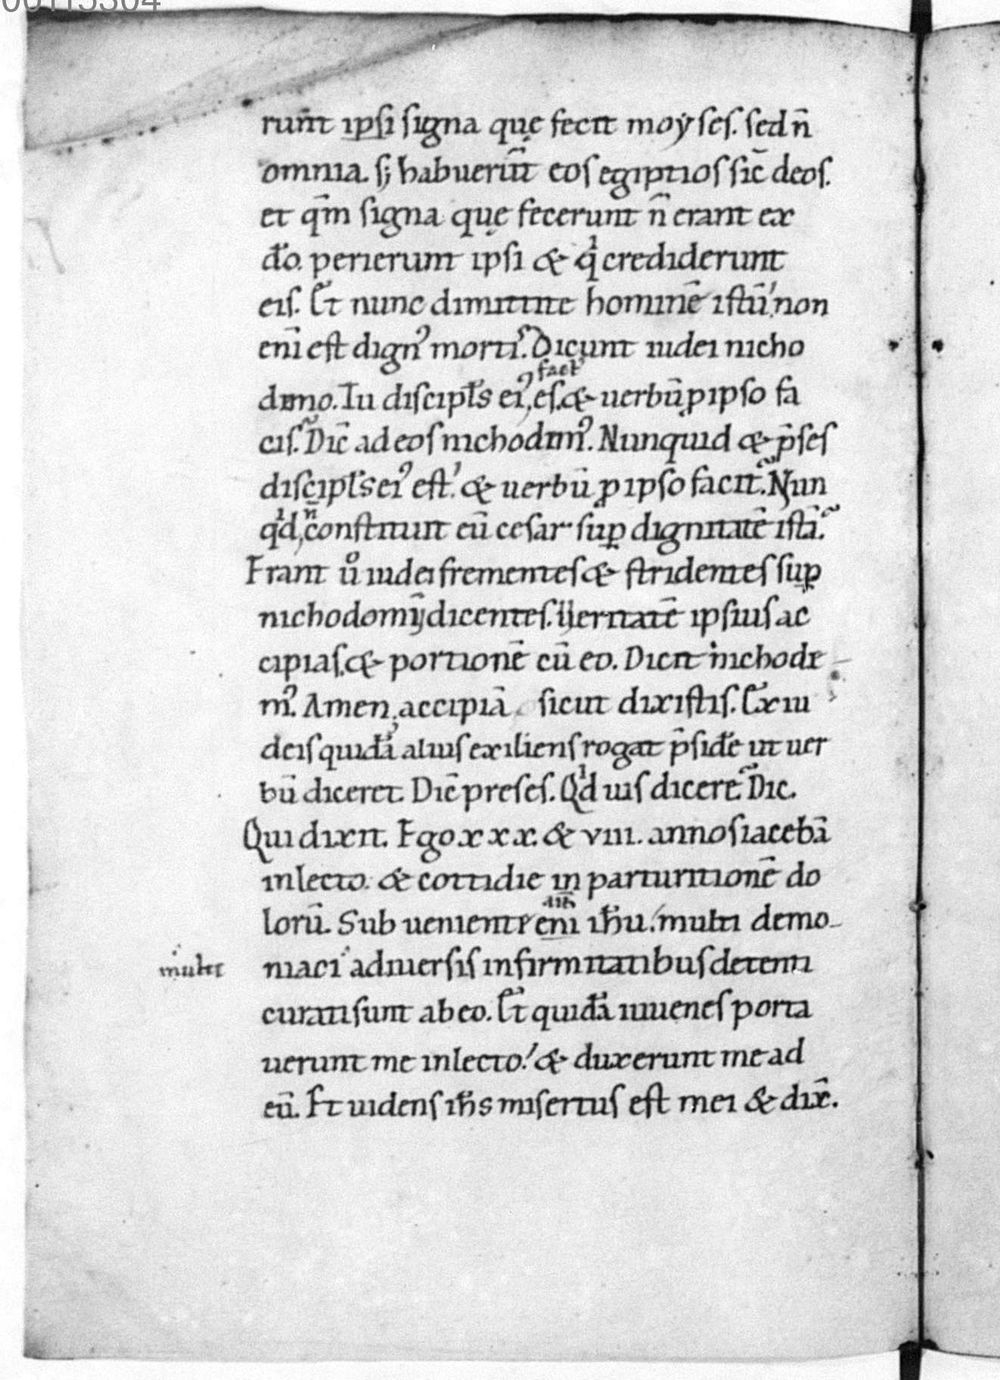 00115304
runt̄ ipsi signa quę fecit moẏses. sed n̄
omnia. s; habuerūt eos egiptios sic̄ deos.
et qm̄ signa quę fecerunt n̄ erant ex
do͞. perierunt ipsi & qͥ crediderunt
eis. Et nunc dimittite hominē istū. non
enī est dignꝰ mortiſ. Dicunt iudei nicho
dimo. Tu discipl̄s eiꝰ factꝰ es. & uerbū ꝓ ipso fa
cis. Dic̄ ad eos nichodimꝰ. Nunquid & p̄ses
discipl̄s eiꝰ est. & uerbū ꝓ ipso facit. Nun
qͥd n̄ constituit eū cesar sup̲ dignitatē istā.
Erant ů iudei frementes & stridentes sup̲
nichodomū dicentes. Ueritatē ipsius ac
cipias. & portionē cū eo. Dicit nichode
mꝰ. Amen, accipiā sicut dixistis. Ex iu
deis quidā alius exiliens rogat p̄sidē ut uer
bū diceret. Dic̄ preses. Qͥd uis dicere. Dic.
Qui dixit. Ego x x x. & viii. anno siacebā
in lecto. & cottidie in parturitionē do
lorū. Sub ueniente enī ih̄u. multi demo
multi
niaci ad diuersis infirmitatibus detenti
curati sunt ab eo. Et quidā iuuenes porta
uerunt me in lecto. & duxerunt me ad
eū. Et uidens ih̄s misertus est mei & dix̄.